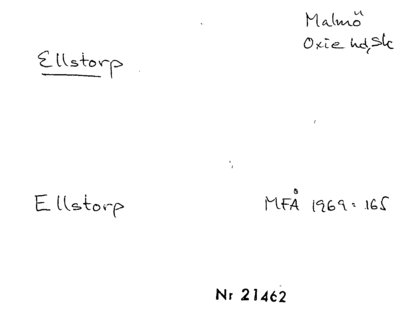 Malmö
Oxie hd, Sk
Ellstorp
Ellstorp MFÅ 1969: 165
Nr 21462